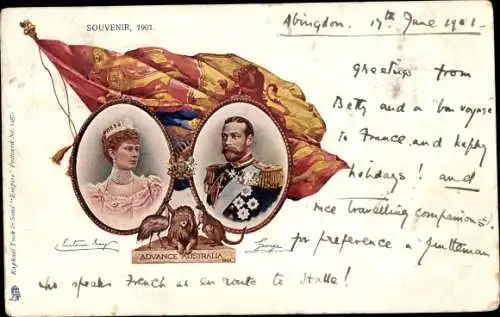 SOUVENIR, 1901.
Abingdon. 17th June 1901.
greetings from
Betty and a "bon voyage
to France, and happy
holidays! and
nice travelling companions
for preference a gentleman
who speaks French as en route to Halle!
Victoria Mary
George
ADVANCE AUSTRALIA
Raphael Tuck & Sons' "Empire" Postcard No.